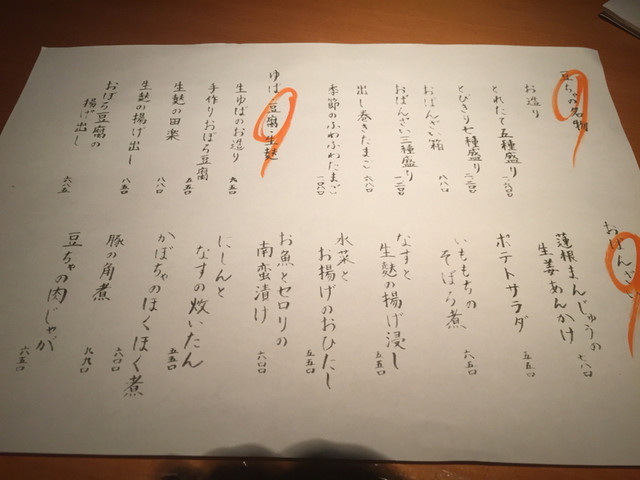 豆ちゃの名物
お造り
とれたて五種盛り
とびきり七種盛り 二二〇〇
おばんざい箱 八八〇
おばんざい三種盛り 一二〇〇
出し巻きたまご 六八〇
季節のふわふわたまご
ゆば・豆腐・生麩
生ゆばのお造り 九五〇
手作りおぼろ豆腐 五五〇
生麩の田楽 八八〇
生麩の揚げ出し 八五〇
おぼろ豆腐の
揚げ出し 六八五
おばんざい
蓮根まんじゅうの
生姜あんかけ 七八〇
ポテトサラダ 五五〇
いももちの
そぼろ煮 六五〇
なすと
生麩の揚げ浸し 五五〇
水菜と
お揚げのおひたし 五五〇
お魚とセロリの
南蛮漬け 六〇〇
にしんと
なすの炊いたん 五五〇
かぼちゃのほくほく煮 六〇〇
豚の角煮 九九〇
豆ちゃの肉じゃが 六五〇